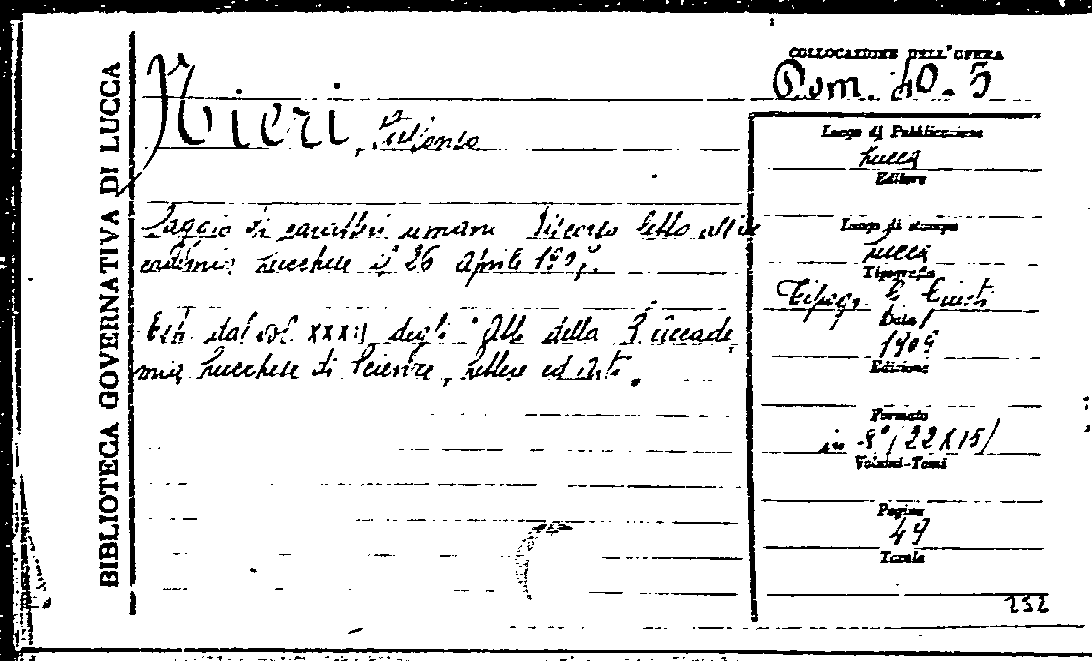 BIBLIOTECA GOVERNATIVA DI LUCCA
Nieri, Ildefonso
Saggio di caratteri umani Discorso letto all'Ac
cademia Lucchese il 26 Aprile 190
Estr. dal vol XXXII degli "Atti della R. Accade,
mia Lucchese di Scienze, Lettere ed Arti.
COLLOCAZIONE DELL'OPERA
Dom. 40. 5
Luogo di Pubblicazione
Lucca
Editore
Luogo di stampa
Lucca
Tipografia
Tipogr. G. Giusti
Data
1904
Edizione
Formato
in -8°/22x15/
Volumi-Tomi
Pagine
49
Tavole
232